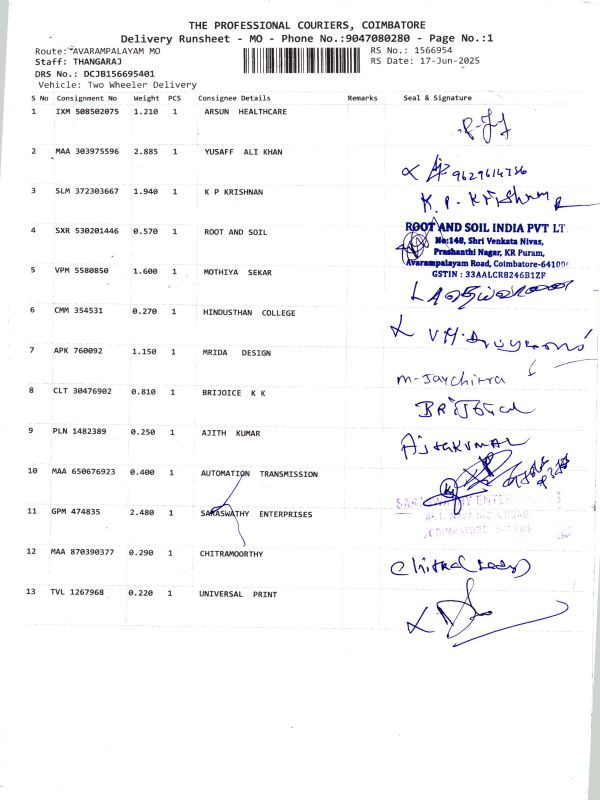 THE PROFESSIONAL COURIERS, COIMBATORE
Delivery Runsheet - MO - Phone No.:9047080280 - Page No.:1
Route: AVARAMPALAYAM MO RS No.: 1566954
Staff: THANGARAJ RS Date: 17-Jun-2025
DRS No.: DCJB156695401
Vehicle: Two Wheeler Delivery
S No Consignment No Weight PCS Consignee Details Remarks Seal & Signature
1 IXM 508502075 1.210 1 ARSUN HEALTHCARE
2 MAA 303975596 2.885 1 YUSAFF ALI KHAN
9629614756
3 SLM 372303667 1.940 1 K P KRISHNAN K.P. Krishnan
4 SXR 530201446 0.570 1 ROOT AND SOIL ROOT AND SOIL INDIA PVT LT
No:148, Shri Venkata Nivas,
Prashanthi Nagar, KR Puram,
Avarampalayam Road, Coimbatore-64100
GSTIN : 33AALCR8246B1ZF
5 VPM 5580850 1.600 1 MOTHIYA SEKAR
6 CMM 354531 0.270 1 HINDUSTHAN COLLEGE
7 APK 760092 1.150 1 MRIDA DESIGN m-Jaychitra
8 CLT 30476902 0.810 1 BRIJOICE K K
9 PLN 1482389 0.250 1 AJITH KUMAR Ajithkumar
10 MAA 650676923 0.400 1 AUTOMATION TRANSMISSION
11 GPM 474835 2.480 1 SARASWATHY ENTERPRISES
12 MAA 870390377 0.290 1 CHITRAMOORTHY
13 TVL 1267968 0.220 1 UNIVERSAL PRINT